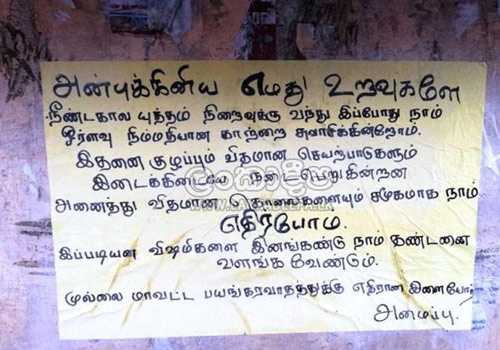 அன்புக்கினிய எமது உறவுகளே
நீண்டகால யுத்தம் நிறைவுக்கு வந்து இப்போது நாம்
சீரளவு நிம்மதியான காற்றை சுவாசிக்கின்றோம்.
இதனை குழப்பும் விதமான செயற்பாடுகளும்
இடைக்கிடையே நடைபெறுகின்றன
அனைத்து விதமான கொலைகளையும் சமூகமாக நாம்
எதிர்ப்போம்.
இப்படியான விஷமிகளை இனங்கண்டு நாம் தண்டனை
வளங்க வேண்டும்.
முல்லை மாவட்ட பயங்கரவாதத்துக்கு எதிரான இளையோர்
அமைப்பு.